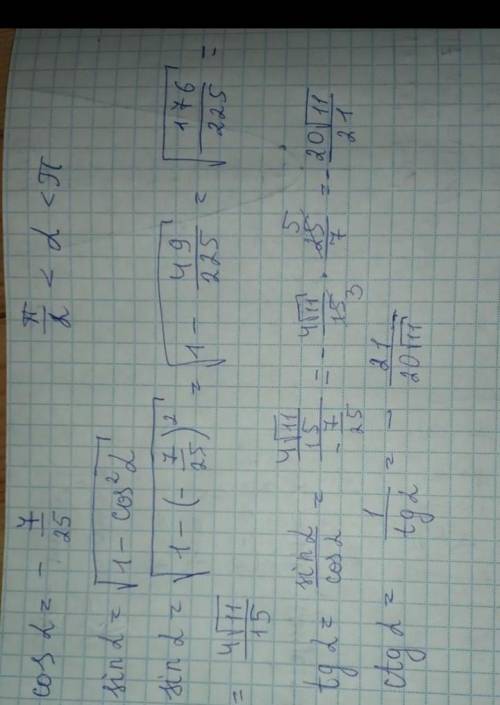 cos α = - 7/25    π/2 < α < π
sin α = √(1 - cos²α)
sin α = √(1 - (- 7/25)²) = √(1 - 49/225) = √(176/225) =
= 4√11/15
tg α = sin α/cos α = (4√11/15)/(- 7/25) = - 4√11/15 3 · 25 5/7 = - 20√11/21
ctg α = 1/tg α = - 21/20√11